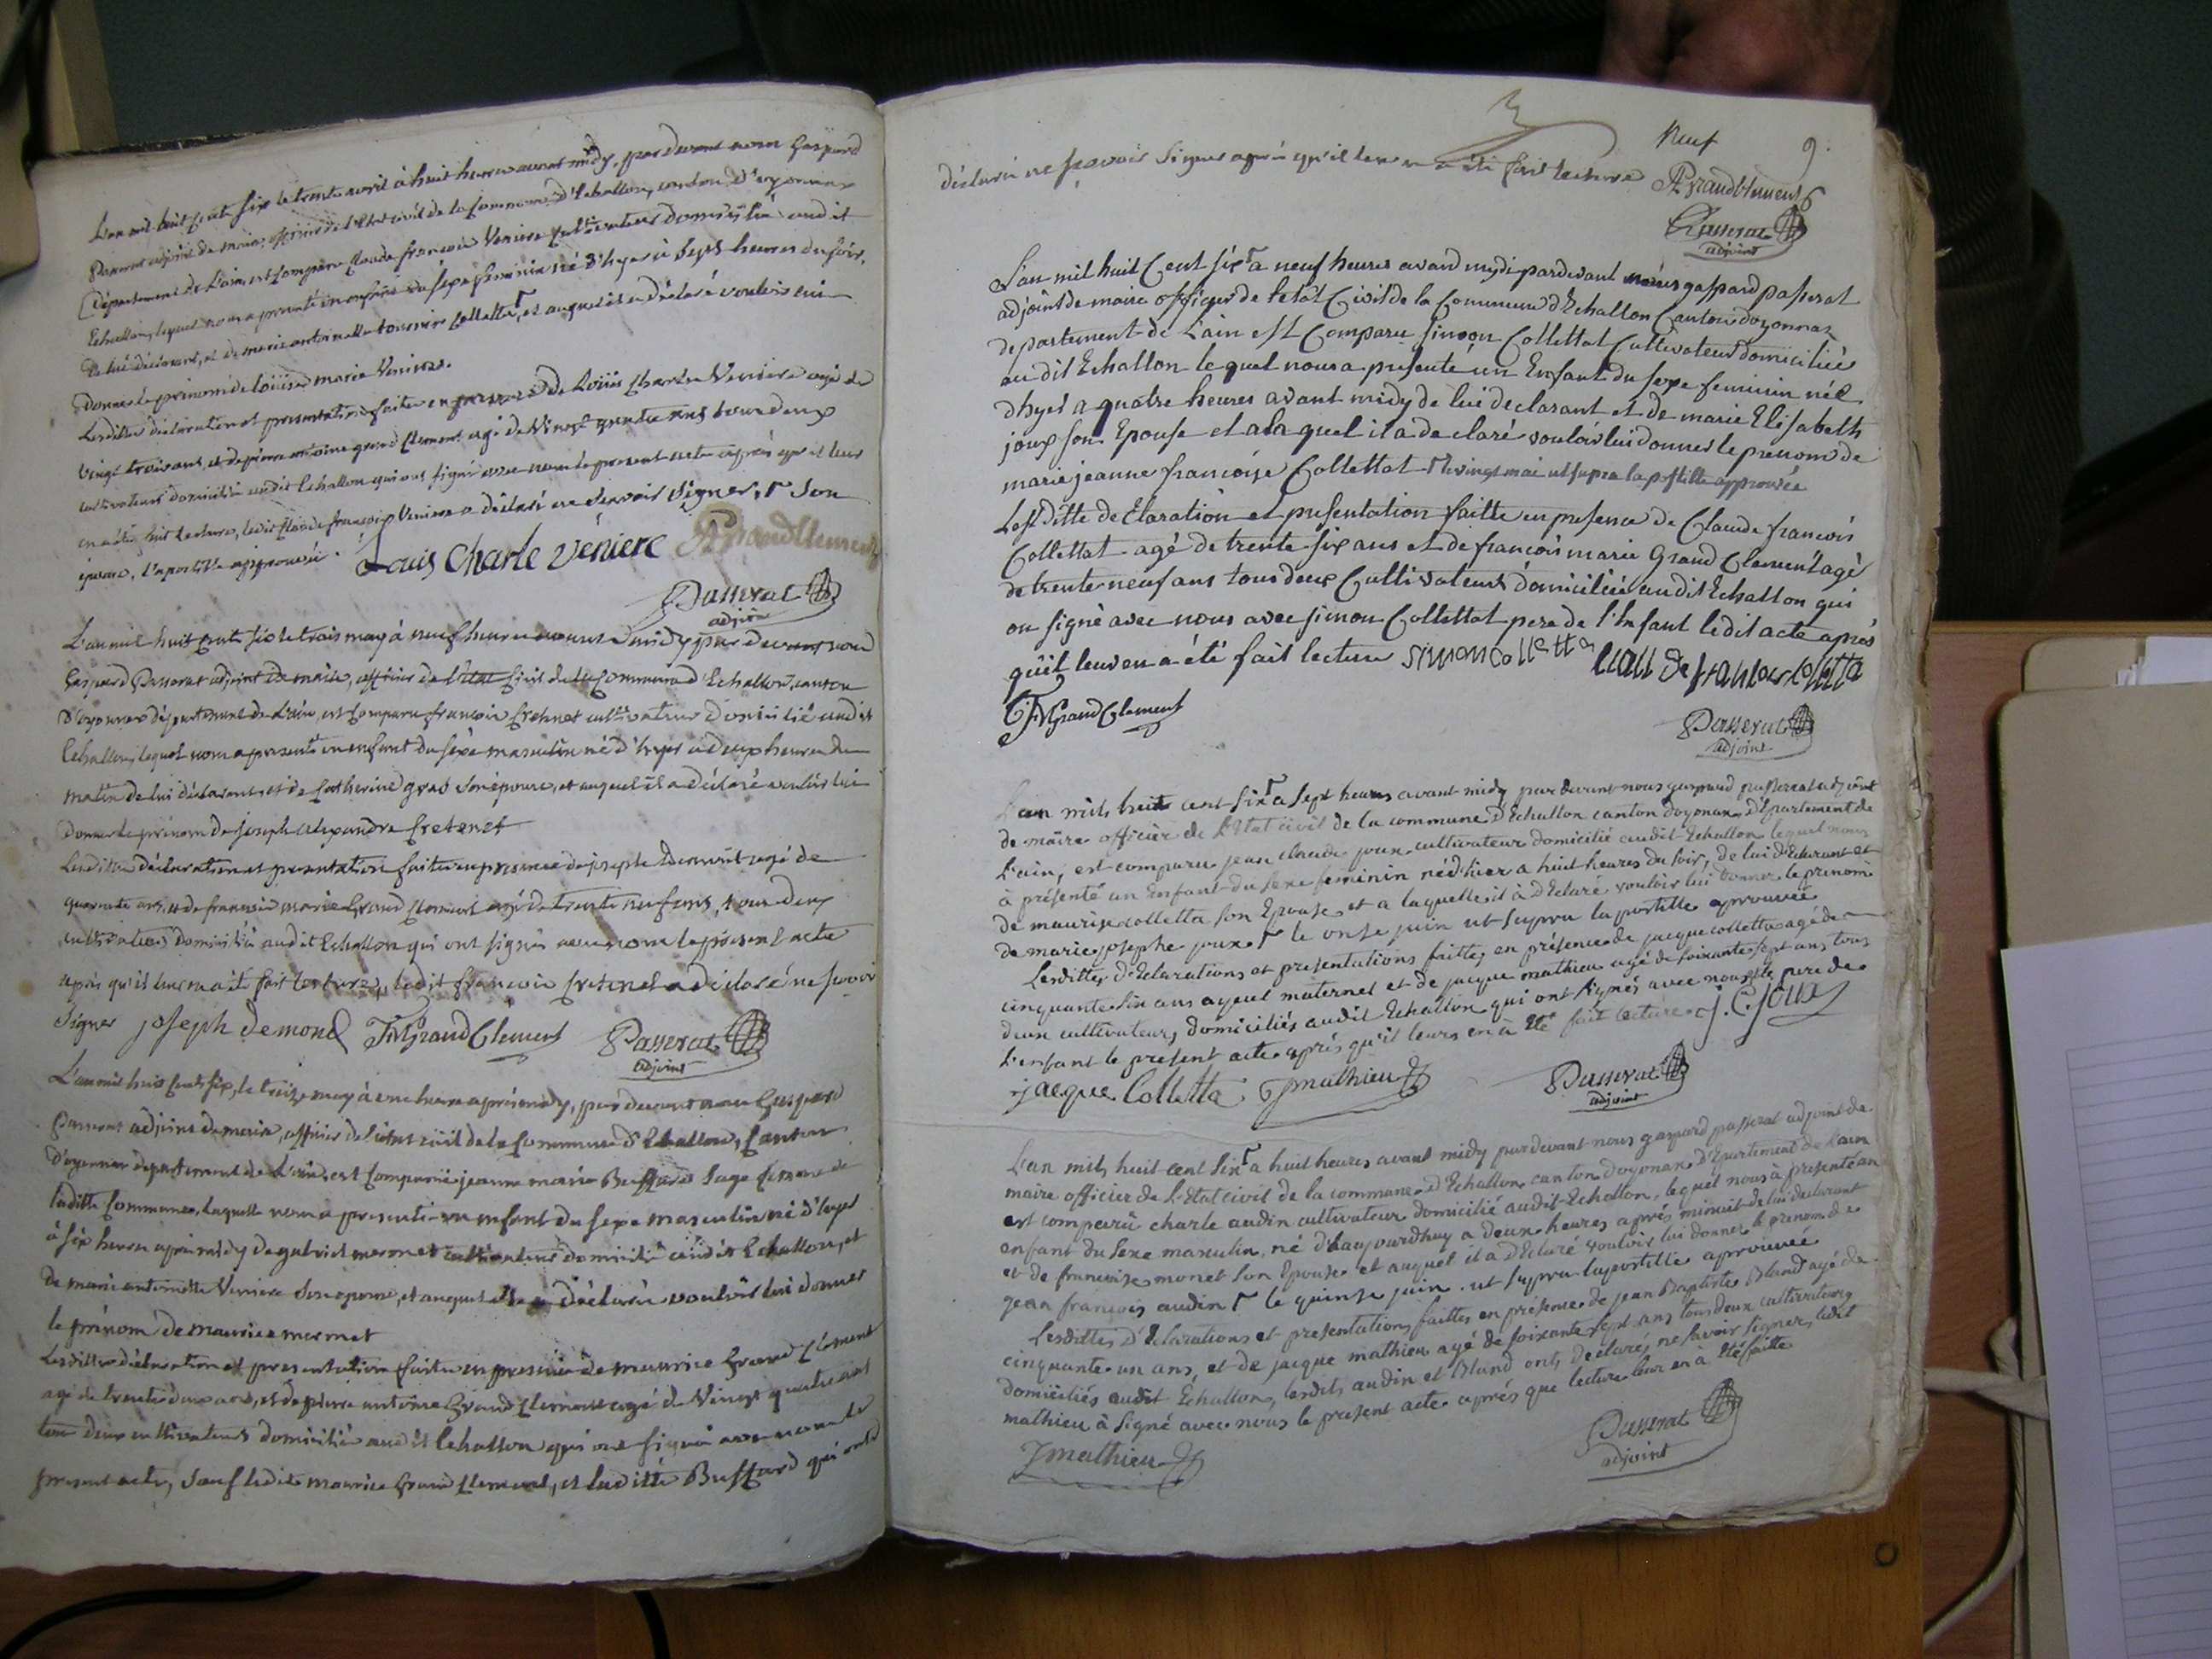 L'an mil huit cent six le trente avril à huit heures avant midy, par devant nous Gaspard
Passerat adjoint de maire, officier de l'état civil de la Commune d'Echallon, canton d'oyonnax
Département de L'ain, est comparu Claude françois Veniere cultivateur domicilié audit
Echallon, lequel nous a presenté un enfant du sexe feminin né d'hyer à sept heures du soir,
de lui déclarant, et de marie antoinette tournier Colletta ┌, et auquel il a déclaré vouloir lui
donner le prénom de loüise marie Veniere.
Lesdittes déclaration et presentation faites en presence de Loüis Charle Veniere agé de
vingt trois ans, et de pierre antoine grand Clement agé de Vingt quatre ans tous deux
cultivateurs domiciliés audit Echallon qui ont signé avec nous le present acte après qu'il leur
en a été fait lecture, ledit Claude françois Veniere a déclaré ne sçavoir signer, ┌ son
épouse, l'apostille approuvée. Louis Charle veniere PAGrandClement
Passerat
adjoint
L'an mil huit cent six le trois may à neuf heures avant midy par devant nous
Gaspard Passerat adjoint de maire, officier de l'état civil de la Commune d'Echallon, canton
d'oyonnax département de L'ain, est comparu françois fretenet cultivateur domicilié audit
Echallon, lequel nous a presenté un enfant du sexe masculin né d'hyer à deux heures du
matin de lui déclarant, et de Catherine gras son épouse, et auquel il a déclaré vouloir lui
donner le prénom de joseph alexandre fretenet
Lesdittes déclaration et presentation faites en presence de joseph Demond agé de
quarante ans, et de françois marie Grand Clement agé de trente neuf ans, tous deux
cultivateurs domiciliés audit Echallon qui ont signés avec nous le présent acte
après qu'il leur en a été fait lecture, ledit françois fretenet a déclaré ne sçavoir
signer joseph demond FMGrandClement Passerat
adjoint
L'an mil huit cent six, le treize may à une heure après midy, par devant nous Gaspard
Passerat adjoint de maire, officier de l'état civil de la Commune d'Echallon, Canton
d'oyonnax departement de L'ain, est comparuë jeanne marie Buffard sage femme de
laditte Commune, laquelle nous a presenté un enfant du sexe masculin né d'hyer
à six heures après midy de gabriel mermet cultivateur domicilié audit Echallon, et
de marie antoinette Veniere son epouse, et auquel elle a déclaré vouloir lui donner
le prénom de maurice mermet
Lesdittes déclaration et presentation faites en presence de maurice Grand Clement
agé de trente deux ans, et de pierre antoine Grand Clement agé de Vingt quatre ans
tous deux cultivateurs domiciliés audit Echallon qui ont signé avec nous le
present acte, sauf ledit maurice Grand Clement, et laditte Buffard qui ont
Neuf 9.
déclaré ne sçavoir signer après qu'il leur en a été fait lecture PAGrandClement
Passerat
adjoint
L'an mil huit Cent six ┌ a neuf heures avant mydi pardevant nous gaspard passerat
adjoint de maire officier de letat Civil de la Commune d'Echallon Canton doyonnax
departement de L'ain est Comparu simon Collettat Cultivateur domiciliée
au dit Echallon le quel nous a presenté un Enfant du sexe feminin née
dhyer a quatre heures avant midy de lui declarant et de marie Elisabeth
joux son Epouse et a la quel il a declaré vouloir lui donner le prenom de
marie jeanne françoise Collettat ┌ le vingt mai ut supra la postille approuvée
Lesd Ditte declaration et presentation faitte en presence de Claude françois
Collettat agé de trente six ans et de françois marie Grand Clement agé
de trente neuf ans tous deux Cultivateurs domiciliée audit Echallon qui
on signé avec nous avec simon Collettat pere de l'Enfant ledit acte après
quil leur en a été fait lecture simon colletta claude francois colletta
FMGrandClement
Passerat
adjoint
L'an mils huit cent six ┌ a sept heures avant midy par devant nous gaspard passerat adjoint
de maire officier de l'Etat civil de la commune d'Echallon canton d'oyonax, d'Epartement de
l'ain, est comparu jean claude joux cultivateur domicilié audit Echallon lequel nous
à présenté un Enfant du sexe feminin né d'hier a huit heures du soir, de lui d'Eclarant et
de maurise colletta son Epouse, et a laquelle il à d'Eclaré vouloir lui donner le prenom
de marie josephe joux ┌ le onse juin ut supra la postille aprouvée
Lesdittes d'Eclarations et presentations faittes en présence de jacque colletta agé de
cinquante six ans ayeul maternel et de jacque mathieu agé de soixante sept ans tous
deux cultivateurs domiciliés audit Echallon qui ont signés avec nous, et le pere de
l'enfant le present acte aprés qu'il leurs en à été fait lecture. J.C. joux
jacque Colletta Jmathieu
Passerat
adjoint
L'an mils huit cent six ┌ a huit heures avant midy pardevant nous gaspard passerat adjoint de
maire officier de l'Etat civil de la commune d'Echallon canton doyonax d'Epartement de l'ain
est comparû charle audin cultivateur domicilié audit Echallon, lequel nous à presenté un
enfant du sexe masculin, né d'haujourdhuy a deux heures aprés minuit de lui declarant
et de francoise monet son Epouse et auquel il a d'Eclaré vouloir lui donner le prenom de
jean francois audin ┌ le quinse juin ut supra lapostille aprouvée
Lesdittes d'Eclarations et presentations faittes, en présence de jean Baptiste Bland agé de
cinquante un ans, et de jacque mathieu agé de soixante sept ans tous deux cultivateurs
domiciliés audit Echallon, lesdits audin et Bland onts declarés ne savoir signer, ledit
mathieu à signé avec nous le present acte aprés que lecture leur en à été faitte
Jmathieu
Passerat
adjoint